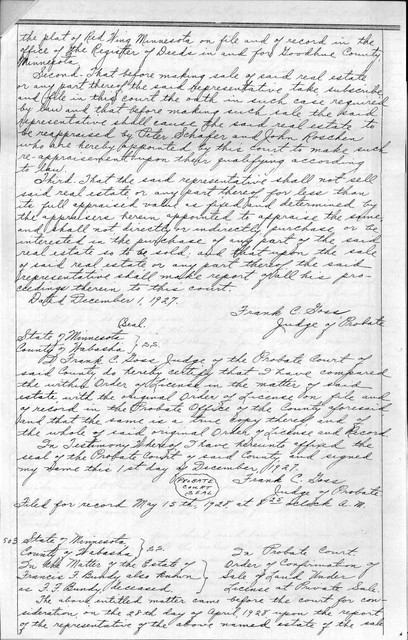 the plat of Red Wing Minnesota on file and of record in the
office of the Register of Deeds in and for Goodhue County
Minnesota.
Second. That before making sale of said real estate
or any part thereof the said representative take subscribe
and file in this court the oath in such case required
by law and that before making such sale the said
representative shall cause the said real estate to
be reappraised by Peter Schafer and John Roschen
who are hereby appointed by this court to make such
re-appraisement upon their qualifying according
to law.
Third. That the said representative shall not sell
said real estate or any part thereof for less than
its full appraised value as fixed and determined by
the appraisers herein appointed to appraise the same
and shall not directly or indirectly purchase or be
interested in the purchase of any part of the said
real estate so to be sold, and that upon the sale
of said real estate or any part thereof the said
representative shall make report of all his pro-
ceedings therein to this court.
Dated December 1, 1927.
Frank C. Goss
Judge of Probate
Seal.
State of Minnesota
County of Wabasha } ss.
I Frank C. Goss Judge of the Probate Court of
said County do hereby certify that I have compared
the within Order of License in the matter of said
estate with the original Order of License on file and
of record in the Probate Office of the County aforesaid
and that the same is a true copy thereof and of
the whole of said original Order of License and Record
In Testimony Whereof I have hereunto affixed the
seal of the Probate Court of said County and signed
my name this 1st day of December, 1927.
PROBATE COURT SEAL
Frank C. Goss
Judge of Probate
Filed for record May 15th, 1928 at 8 o'clock A.M.
503 State of Minnesota
County of Wabasha } ss. In Probate Court.
In the Matter of the Estate of Order of Confirmation of
Francis F. Bundy also known Sale of Land Under
as F. F. Bundy, deceased License at Private Sale.
The above entitled matter came before the court for con-
sideration on the 28th day of April 1928 upon the report
of the representative of the above named estate of the sale